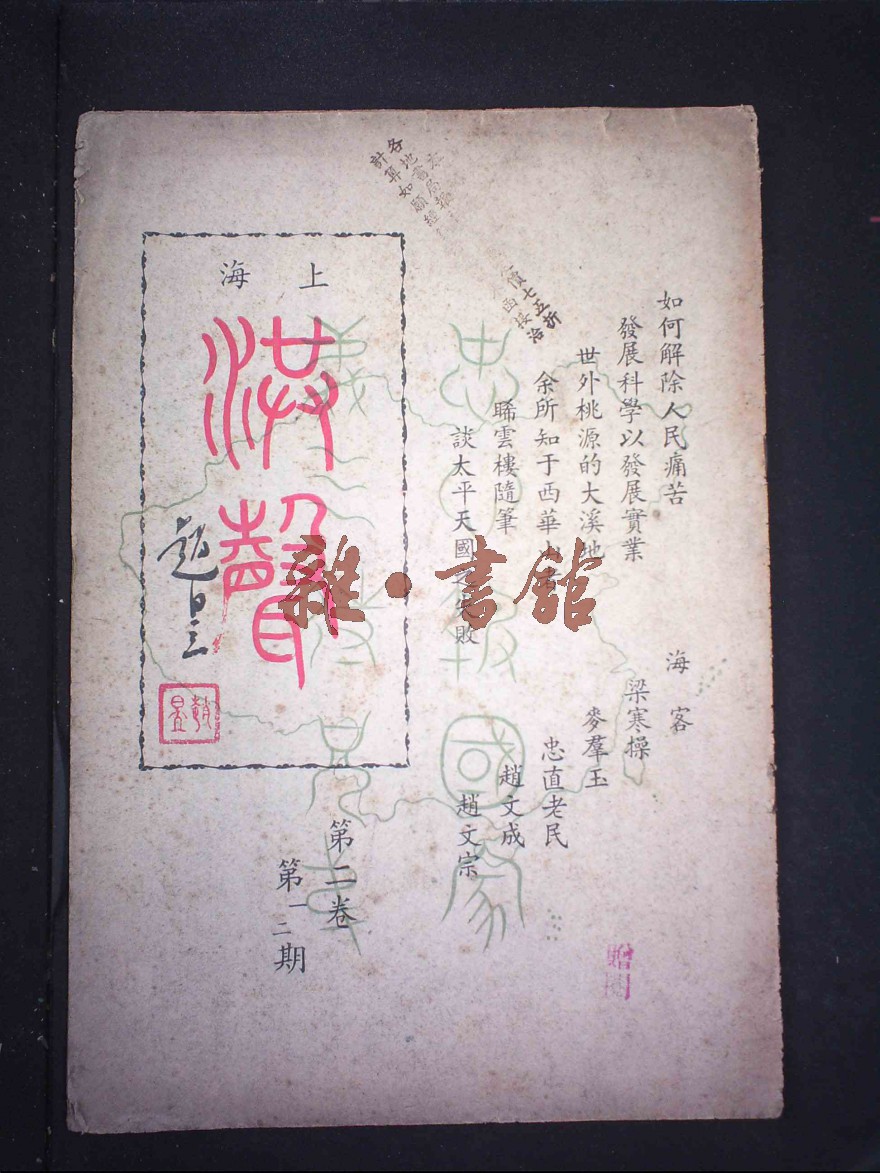 如何解除人民痛苦 海客
發展科學以發展實業 梁寒操
世外桃源的大溪地 麥羣玉
余所知于西華山 忠直老民
睎雲樓隨筆 趙文成
談太平天國之失敗 趙文宗
上海
洪聲
趙昱
趙昱
第二卷
第一二期
忠 報國家
義 兄弟
各地書局
計算如願經
價七五折
函接洽
贈閱
雜·書館